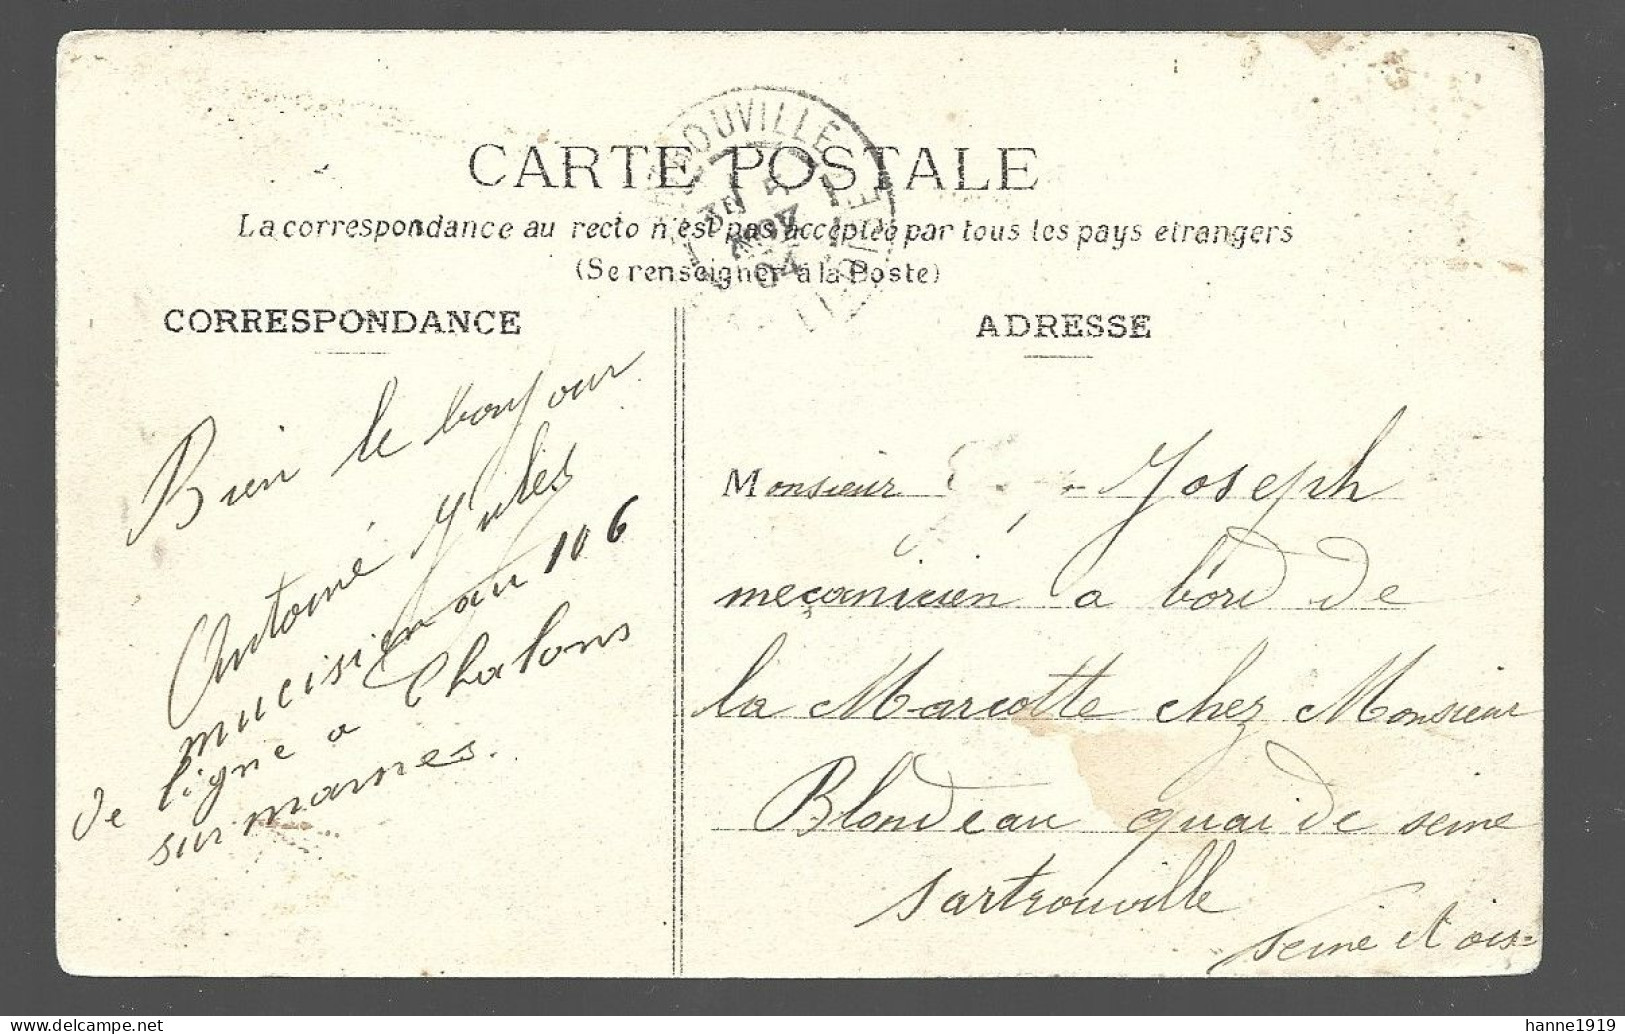 CARTE POSTALE
La correspondance au recto n'est pas acceptée par tous les pays etrangers
(Se renseigner à la Poste)
CORRESPONDANCE
Bien le bonjour
Antoine Jules
mucisien au 106
de ligne a Chalons
sur marnes.
ADRESSE
Monsieur Joseph
meçanicien a bord de
la Marcotte chez Monsieur
Blondeau quai de seine
Sartrouville
Seine et ois=
NOV
04
hanne1919